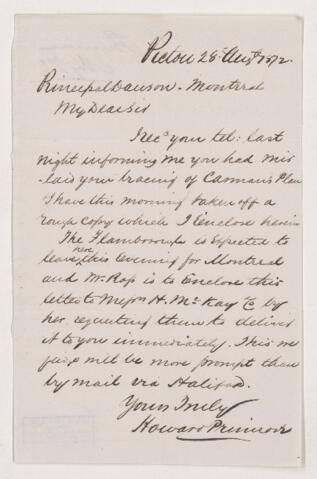 Pictou 28 Augt 1872.
Principal Dawson. Montreal
My Dear Sir
I recd your tel: last
night informing me you had mis
-laid your tracing of Carman's Plan
I have this morning taken off a
rough copy which I Enclose herein
The Flamborough is Expected to
leave here this Evening for Montreal
and Mr Ross is to Enclose this
letter to Messrs H. McKay & Co by
her requesting them to deliver
it to you immediately. This we
judge will be more prompt than
by mail via Halifax.
Yours Truly
Howard Primrose